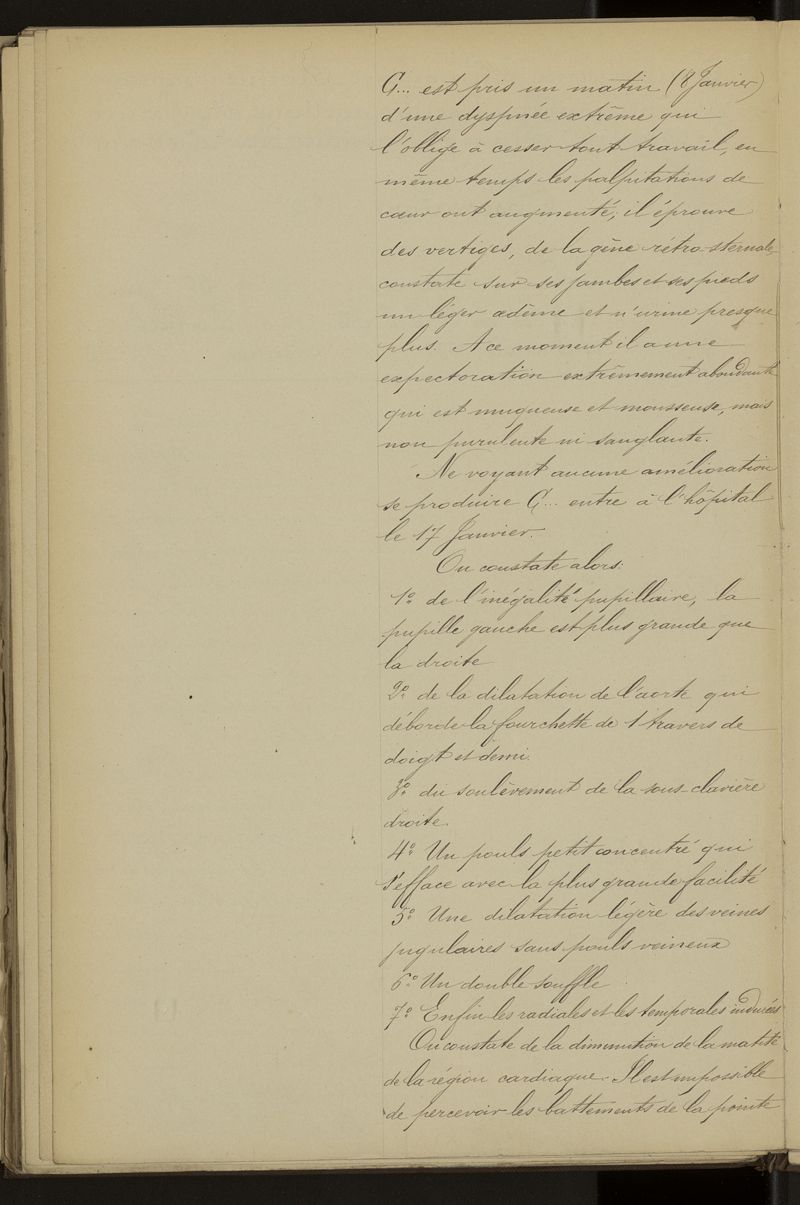 G... est pris un matin (8 Janvier)
d'une dyspnée extrême qui
l'oblige à cesser tout travail, en
même temps les palpitations de
cœur ont augmenté; il éprouve
des vertiges, de la gêne rétro-sternale
constate sur ses jambes et ses pieds
un léger œdème et n'urine presque
plus. A ce moment il a une
expectoration extrêmement abondante
qui est muqueuse et mousseuse, mais
non purulente ni sanglante.
Ne voyant aucune amélioration
se produire G... entre à l'hôpital
le 17 Janvier.
On constate alors:
1º de l'inégalité pupillaire, la
pupille gauche est plus grande que
la droite
2º de la dilatation de l'aorte qui
déborde la fourchette de 1 travers de
doigt et demi.
3º du soulèvement de la sous clavière
droite.
4º Un pouls petit concentré qui
s'efface avec la plus grande facilité
5º Une dilatation légère des veines
jugulaires sans pouls veineux
6º Un double souffle
7º Enfin les radiales et les temporales indurées
On constate de la diminution de la matité
de la région cardiaque. Il est impossible
de percevoir les battements de la pointe